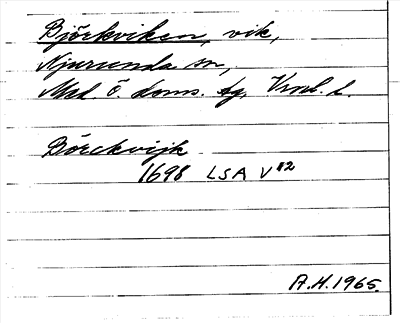 Björkviken, vik,
Njurunda sn,
Med. ö. doms. tg, Vnrl. l.
Börckvijk
1698 LSA V 12
A.H. 1965.